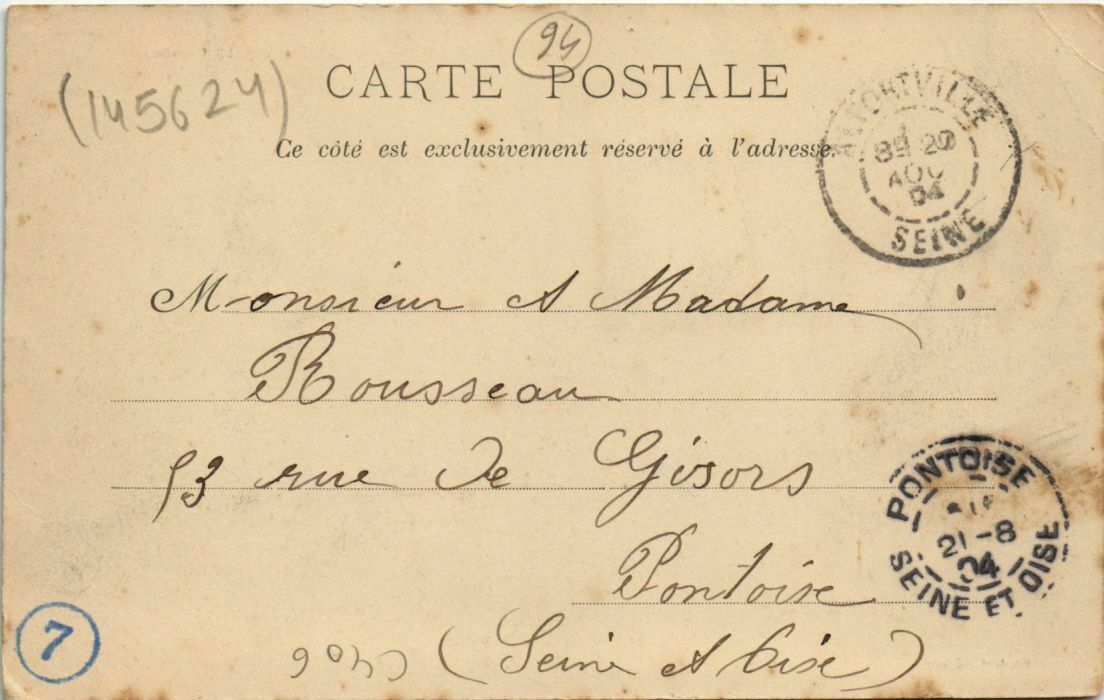 94
CARTE POSTALE
(145624)
Ce côté est exclusivement réservé à l'adresse.
ALFORTVILLE
20
AOU
04
SEINE
Monsieur et Madame
Rousseau
53 rue de Gisors
Pontoise
(Seine et Oise)
PONTOISE
21-8
04
SEINE ET OISE
7
C406